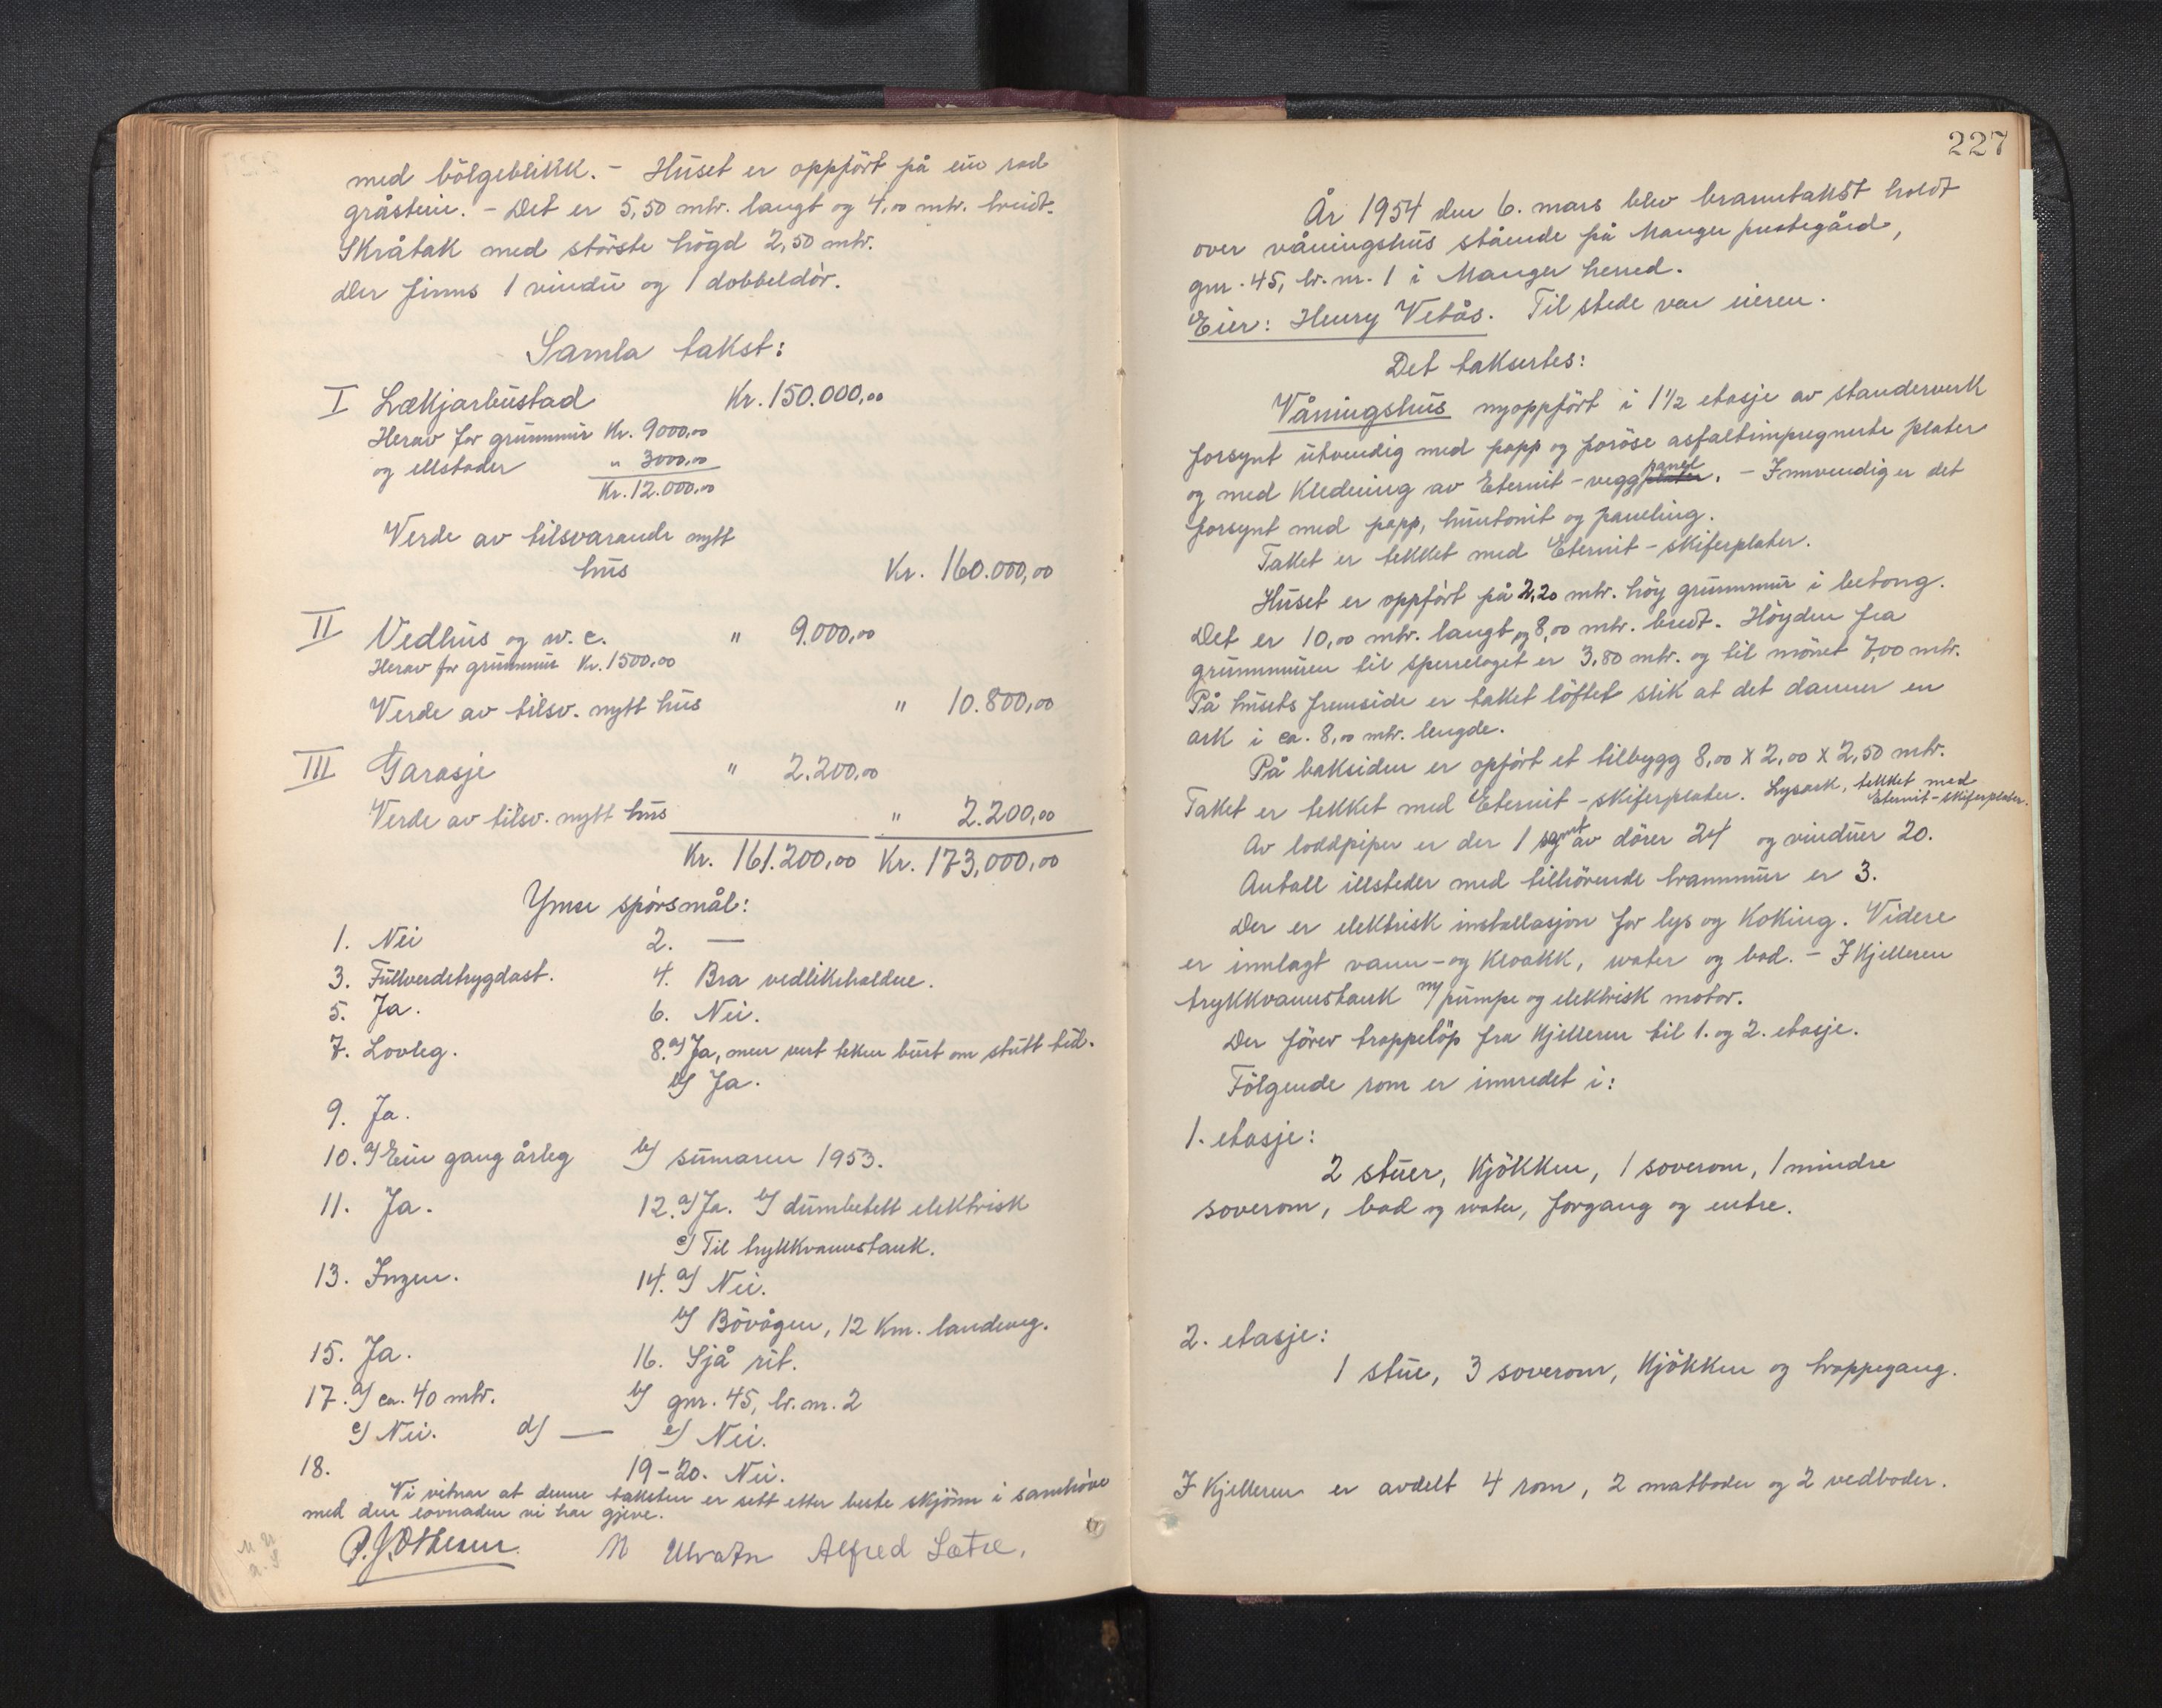 med bölgeblikk. - Huset er oppfört på ein rad
gråstein. - Det er 5,50 mtr. langt og 4,00 mtr. breidt.
Skråtak med största högd 2,50 mtr.
Der finns 1 vindu og 1 dobbeldör.
Samla takst:
I Lækjarbustad Kr. 150.000,00
Herav for grunnmur Kr. 9000,00
og ellstader " 3000,00
Kr. 12.000,00
Verde av tilsvarande nytt
hus Kr. 160.000,00
II Vedhus og w.c. " 9.000,00
Herav for grunnmur Kr. 1500,00
Verde av tilsv. nytt hus " 10.800,00
III Garasje " 2.200,00
Verde av tilsv. nytt hus " 2.200,00
Kr. 161.200,00 Kr. 173,000,00
Ymse spörsmål:
1. Nei 2. —
3. Fullverdetrygdast. 4. Bra vedlikehaldne.
5. Ja. 6. Nei.
7. Lovleg. 8. a) Ja, men vert teken burt om stutt tid.
b) Ja.
9. Ja.
10. a) Ein gang årleg b) sumaren 1953.
11. Ja. 12. a) Ja. b) dumbetett elektrisk
c) Til trykkvannstank.
13. Ingen. 14. a) Nei.
b) Bövågen, 12 Km. landeveg.
15. Ja. 16. Sjå rit.
17. a) ca. 40 mtr. b) gnr. 45, br. nr. 2
c) Nei. d) — e) Nei.
18. 19-20. Nei.
Vi vitnar at denne taksten er sett etter beste skjönn i samhöve
med den lovnaden vi har gjeve.
P. J. Othesen N Ulvatn Alfred Sætre.
227
År 1954 den 6. mars blev branntakst holdt
over våningshus stående på Manger prestegård,
gnr. 45, br. nr. 1 i Manger herred.
Eier: Henry Vetås. Til stede var eieren.
Det taksertes:
Våningshus nyoppfört i 1 1/2 etasje av standerverk
forsynt utvendig med papp og poröse asfaltimpregnerte plater
og med Kledning av Eternit-veggpanel. - Innvendig er det
forsynt med papp, huntonit og paneling.
Taket er tekket med Eternit-skiferplater.
Huset er oppfört på 2,20 mtr. höy grunnmur i betong.
Det er 10,00 mtr. langt og 8,00 mtr. bredt. Höyden fra
grunnmuren til sperrelaget er 3,80 mtr. og til mönet 7,00 mtr.
På husets fremside er taket löftet slik at det danner en
ark i ca. 8,00 mtr. lengde.
På baksiden er opfört et tilbygg 8,00 x 2,00 x 2,50 mtr.
Taket er tekket med Eternit-skiferplater. Lysark, tekket med
Eternit-skiferplater.
Av loddpiper er der 1 samt av dörer 24 og vinduer 20.
Antall illsteder med tilhörende brannmur er 3.
Der er elektrisk installasjon for lys og Koking. Videre
er innlagt vann- og Kloakk, water og bad. - I Kjelleren
trykkvannstank m/ pumpe og elektrisk motor.
Der förer trappelöp fra Kjelleren til 1. og 2. etasje.
Fölgende rom er innredet i:
1. etasje:
2 stuer, Kjökken, 1 soverom, 1 mindre
soverom, bad og water, forgang og entre.
2. etasje:
1 stue, 3 soverom, Kjökken og trappegang.
I Kjelleren er avdelt 4 rom, 2 matboder og 2 vedboder.